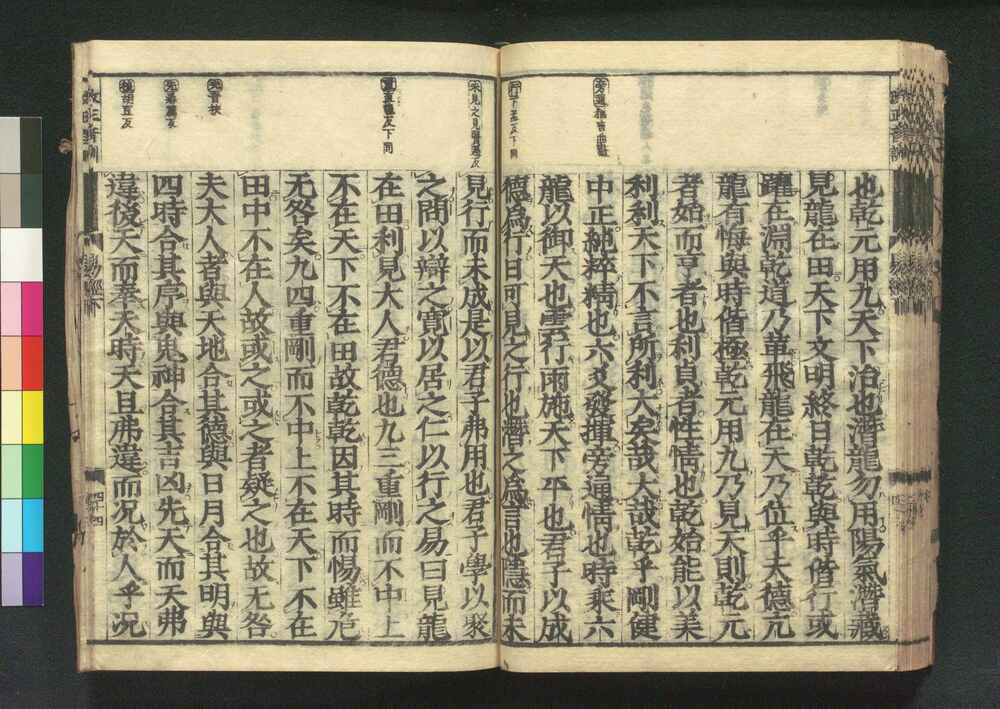 也乾元用九天下治也潛龍勿用陽氣潛藏
見龍在田天下文明終日乾乾與時偕行或
躍在淵乾道乃革飛龍在天乃位乎天德亢
龍有悔與時偕極乾元用九乃見天則乾元
者始而亨者也利貞者性情也乾始能以美
利利天下不言所利大矣哉大哉乾乎剛健
中正純粹精也六爻發揮旁通情也時乘六
龍以御天也雲行雨施天下平也君子以成
德爲行日可見之行也潛之爲言也隱而未
行下孟反下同
未見之見賢遍反
見行而未成是以君子弗用也君子學以聚
之問以辯之寬以居之仁以行之易曰見龍
重直龍反下同
在田利見大人君德也九三重剛而不中上
不在天下不在田故乾乾因其時而惕雖危
无咎矣九四重剛而不中上不在天下不在
田中不在人故或之或之者疑之也故无咎
夫音扶
夫大人者與天地合其德與日月合其明與
先悉薦反
四時合其序與鬼神合其吉凶先天而天弗
後胡豆反
違後天而奉天時天且弗違而況於人乎況
易經